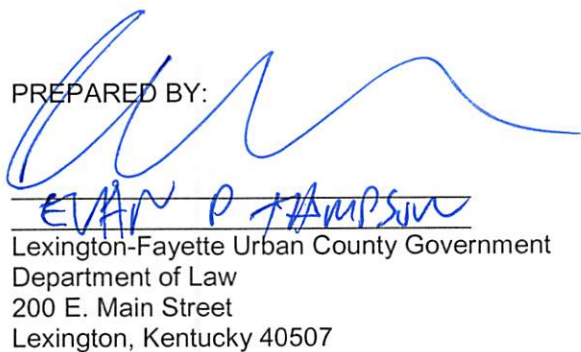 PREPARED BY:
EVAN P THAMPSON
Lexington-Fayette Urban County Government
Department of Law
200 E. Main Street
Lexington, Kentucky 40507